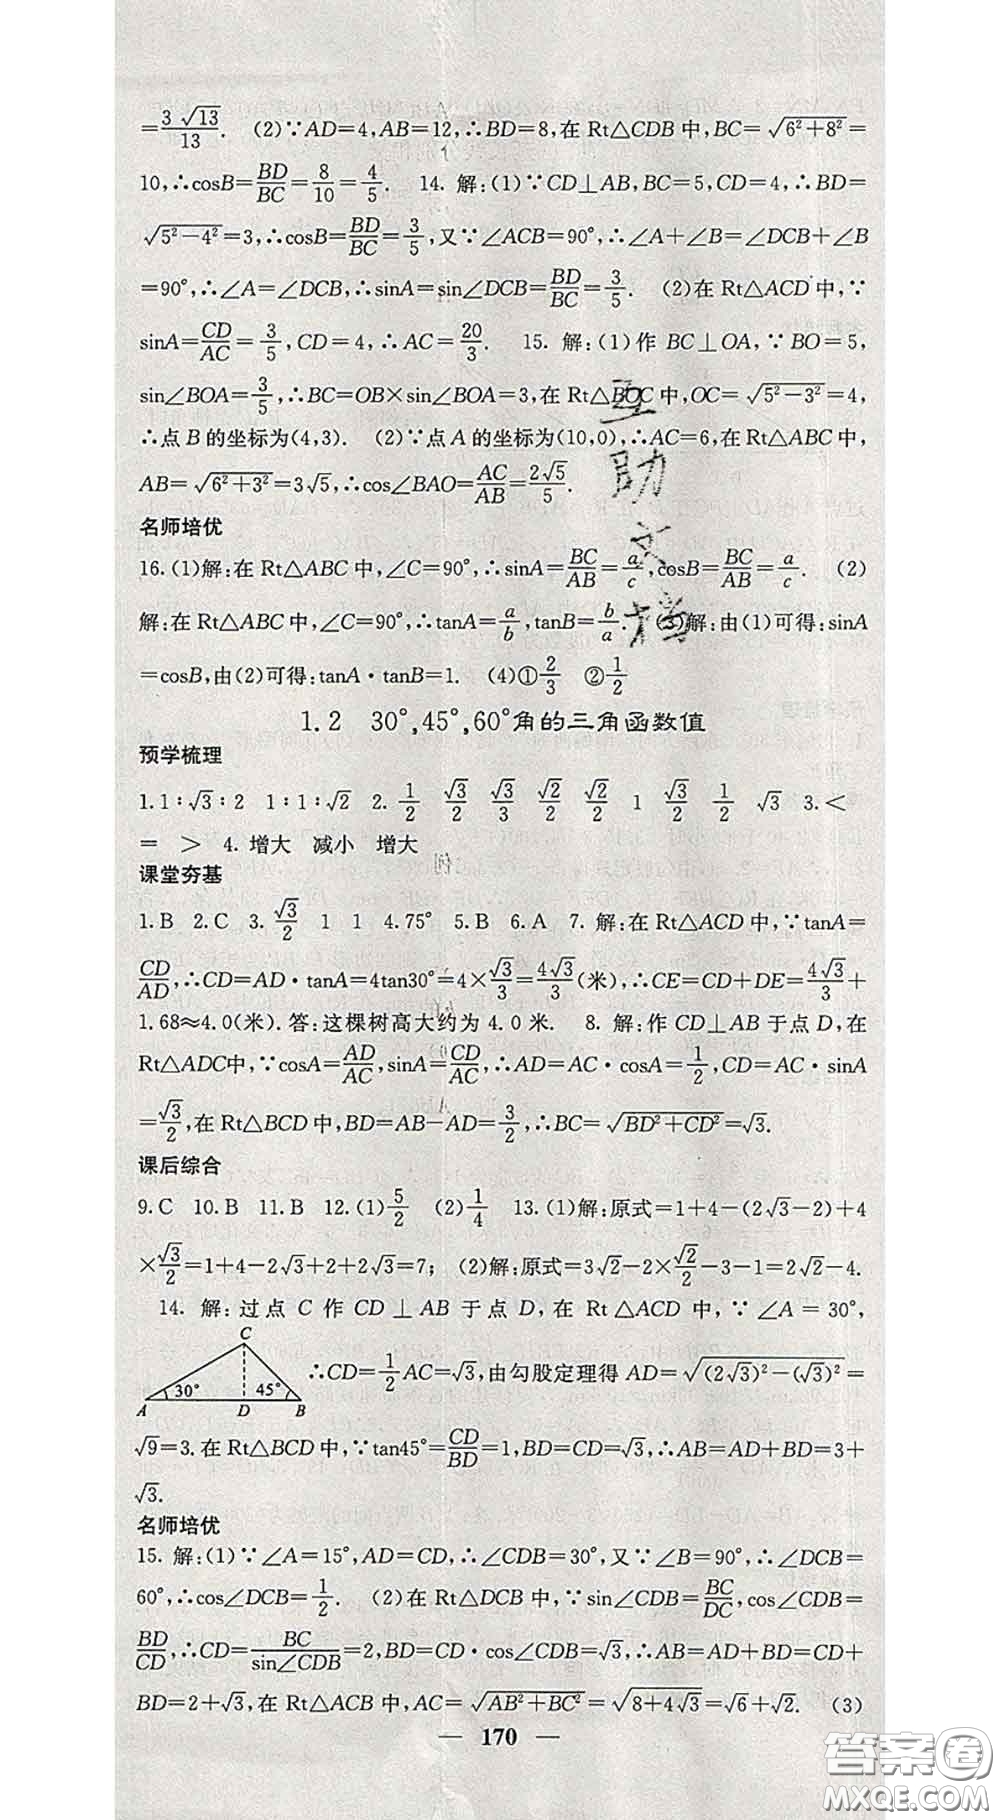 =3√13/13. (2)∵AD=4,AB=12,∴BD=8,在 Rt△CDB 中,BC=√(6²+8²)=
10,∴cosB=BD/BC=8/10=4/5. 14. 解:(1)∵CD⊥AB,BC=5,CD=4,∴BD=
√(5²-4²)=3,∴cosB=BD/BC=3/5,又∵∠ACB=90°,∴∠A+∠B=∠DCB+∠B
=90°,∴∠A=∠DCB,∴sinA=sin∠DCB=BD/BC=3/5. (2)在 Rt△ACD 中,∵
sinA=CD/AC=3/5,CD=4,∴AC=20/3. 15. 解:(1)作 BC⊥OA,∵BO=5,
sin∠BOA=3/5,∴BC=OB×sin∠BOA=3,在 Rt△BOC 中,OC=√(5²-3²)=4,
∴点 B 的坐标为(4,3). (2)∵点 A 的坐标为(10,0),∴AC=6,在 Rt△ABC 中,
AB=√(6²+3²)=3√5,∴cos∠BAO=AC/AB=2√5/5.
名师培优
16.(1)解:在 Rt△ABC 中,∠C=90°,∴sinA=BC/AB=a/c,cosB=BC/AB=a/c. (2)
解:在 Rt△ABC 中,∠C=90°,∴tanA=a/b,tanB=b/a. (3)解:由(1)可得:sinA
=cosB,由(2)可得:tanA·tanB=1. (4)①2/3 ②1/2
1.2 30°,45°,60°角的三角函数值
预学梳理
1.1∶√3∶2 1∶1∶√2 2.1/2 √3/2 √3/3 √2/2 √2/2 1 √3/2 1/2 √3 3.<
= > 4. 增大 减小 增大
课堂夯基
1.B 2.C 3.√3/2 1 1 4.75° 5.B 6.A 7. 解:在 Rt△ACD 中,∵tanA=
CD/AD,∴CD=AD·tanA=4tan30°=4×√3/3=4√3/3(米),∴CE=CD+DE=4√3/3+
1.68≈4.0(米).答:这棵树高大约为 4.0 米. 8. 解:作 CD⊥AB 于点 D,在
Rt△ADC中,∵cosA=AD/AC,sinA=CD/AC,∴AD=AC·cosA=1/2,CD=AC·sinA
=√3/2,在 Rt△BCD 中,BD=AB-AD=3/2,∴BC=√(BD²+CD²)=√3.
课后综合
9.C 10.B 11.B 12.(1)5/2 (2)1/4 13.(1)解:原式=1+4-(2√3-2)+4
×√3/2=1+4-2√3+2+2√3=7; (2)解:原式=3√2-2×√2/2-3-1=2√2-4.
14. 解:过点 C 作 CD⊥AB 于点 D,在 Rt△ACD 中,∵∠A=30°,
C
30° 45°
A D B
∴CD=1/2AC=√3,由勾股定理得 AD=√((2√3)²-(√3)²)=
√9=3.在 Rt△BCD 中,∵tan45°=CD/BD=1,BD=CD=√3,∴AB=AD+BD=3+
√3.
名师培优
15. 解:(1)∵∠A=15°,AD=CD,∴∠CDB=30°,又∵∠B=90°,∴∠DCB=
60°,∴cos∠DCB=1/2. (2)在 Rt△DCB 中,∵sin∠CDB=BC/DC,cos∠CDB=
BD/CD,∴CD=BC/sin∠CDB=2,BD=CD·cos∠CDB=√3,∴AB=AD+BD=CD+
BD=2+√3,在 Rt△ACB 中,AC=√(AB²+BC²)=√(8+4√3)=√6+√2. (3)
— 170 —
互助文档
答案圈
MXQE.COM